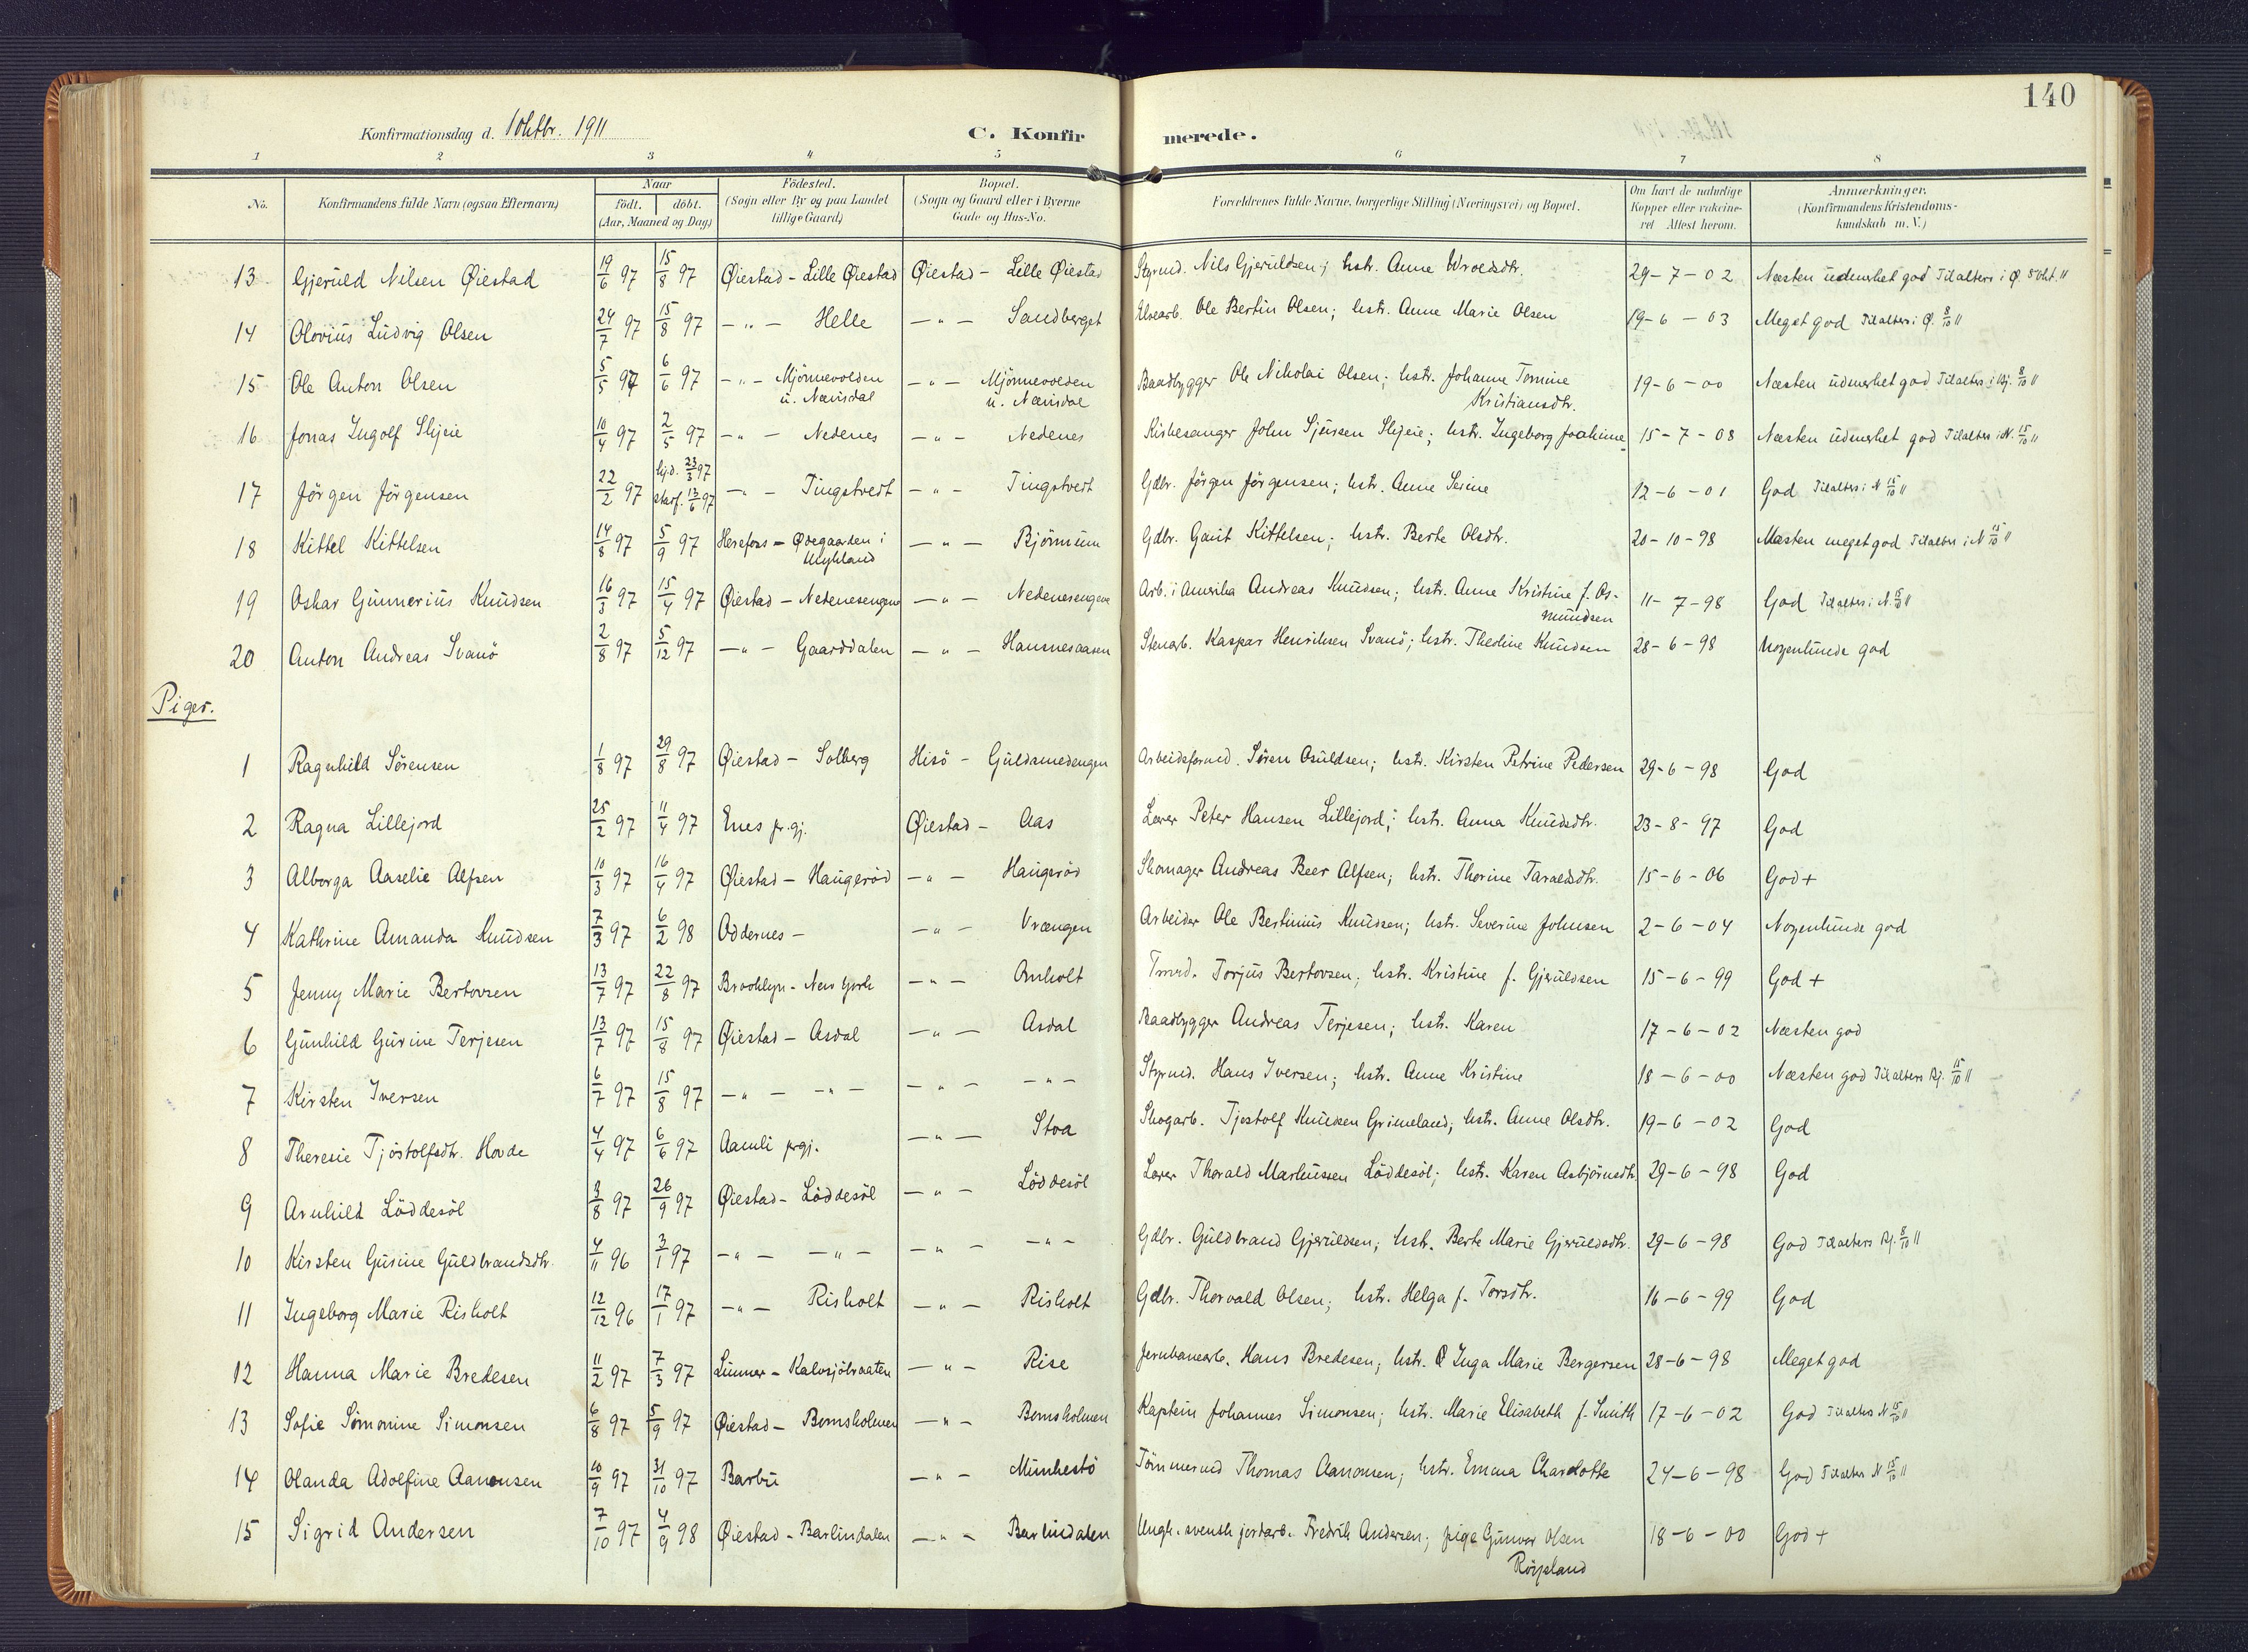 140
Konfirmationsdag d. 1 oktbr. 1911 C. Konfirmerede.
1 2 3 4 5 6 7 8
No. Konfirmandens fulde Navn (ogsaa Efternavn) Naar födt. döbt. (Aar, Maaned og Dag) Födested. (Sogn eller By og paa Landet tillige Gaard) Bopæl. (Sogn og Gaard eller i Byerne Gade og Hus-No. Forældrenes fulde Navne, borgerlige Stilling (Næringsvei) og Bopæl. Om havt de naturlige Kopper eller vakcineret Attest herom. Anmærkninger. (Konfirmandens Kristendomskundskab m. V.)
13 Gjeruld Nilsen Øiestad 19/6 97 15/8 97 Øiestad - Lille Øiestad Øiestad - Lille Øiestad Styrmd. Nils Gjeruldsen; hstr. Anne Wroldsdtr. 29-7-02 Næsten udmerket god Til alters i Ø. 8 okt. 11
14 Olovius Ludvig Olsen 24/7 97 15/8 97 -"- Helle -"- Sandberget Ole Bertin Olsen; hstr. Anne Marie Olsen 19-6-03 Meget god Til alters i Ø. 8/10 11
15 Ole Anton Olsen 5/5 97 6/6 97 -"- Mjönnevolden u. Nævisdal -"- Mjönnevolden u. Nævisdal Baadbygger Ole Nikolai Olsen; hstr. Johanne Tomine Kristiansdtr. 19-6-00 Næsten udmerket god Til alters i Bj. 8/10 11
16 Jonas Ingolf Skjeie 10/4 97 2/5 97 -"- Nedenes -"- Nedenes Kirkesanger John Sjursen Skjeie; hstr. Ingeborg Joakime 15-7-08 Næsten udmerket god Til alters i N. 15/10 11
17 Jörgen Jörgensen 22/2 97 hjd. 23/3 97 stadf. 13/6 97 -"- Tingstvedt -"- Tingstvedt Gdbr. Jörgen Jörgensen; hstr. Anne Serine 12-6-01 God Til alters i N 15/10 11
18 Kittel Kittelsen 14/8 97 5/9 97 Herefoss - Ødegaarden i Mykland -"- Bjönnum Gdbr. Gaut Kittelsen; hstr. Berte Olsdtr. 20-10-98 Næsten meget god Til alters i N 15/10 11
19 Oskar Gunnerius Knudsen 16/3 97 15/4 97 Øiestad - Nedenesengene -"- Nedenesengene Arb. i Amerika Andreas Knudsen; hstr. Anne Kristine f. Osmundsen 11-7-98 God Til alters i N. 15/10 11
20 Anton Andreas Svanö 2/8 97 5/12 97 -"- Gaarddalen -"- Hausnesaasen Stenarb. Kaspar Henriksen Svanö; hstr. Theoline Knudsen 28-6-98 Nogenlunde god
Piger.
1 Ragnhild Sörensen 1/8 97 29/8 97 Øiestad - Solberg Hisö - Guldsmedengen Arbeidsformd. Sören Osuldsen; hstr. Kirsten Petrine Pedersen 29-6-98 God
2 Ragna Lillejord 25/2 97 11/4 97 Enes pr.gj. Øiestad - Aas Lærer Peter Hansen Lillejord; hstr. Anna Knudsdtr. 23-8-97 God
3 Alborga Aaselie Alfsen 10/3 97 16/4 97 Øiestad - Haugeröd -"- Haugeröd Skomager Andreas Beer Alfsen; hstr. Thorine Taraldsdtr. 15-6-06 God +
4 Kathrine Amanda Knudsen 7/3 97 6/2 98 Oddernes - -"- Vrængen Arbeider Ole Bertinius Knudsen; hstr. Severine Johnsen 2-6-04 Nogenlunde god
5 Jenny Marie Bertovsen 13/7 97 22/8 97 Brooklyn - New York -"- Omholt Tmrd. Torjus Bertovsen; hstr. Kristine f. Gjeruldsen 15-6-99 God +
6 Gunhild Gurine Terjesen 13/7 97 15/8 97 Øiestad - Asdal -"- Asdal Baadbygger Andreas Terjesen; hstr. Karen 17-6-02 Næsten god
7 Kirsten Iversen 6/7 97 15/8 97 -"- -"- -"- -"- Styrmd. Hans Iversen; hstr. Anne Kristine 18-6-00 Næsten god Til alters Bj. 15/10 11
8 Theresie Tjöstolfsdtr. Hovde 4/4 97 6/6 97 Aamli prgj. -"- Stoa Skogarb. Tjöstolf Knudsen Grimeland; hstr. Anne Olsdtr. 19-6-02 God
9 Arnhild Löddesöl 3/8 97 26/9 97 Øiestad - Löddesöl -"- Löddesöl Lærer Thorald Markussen Löddesöl; hstr. Karen Asbjörnsdtr. 29-6-98 God
10 Kirsten Gurine Guldbrandsdtr. 4/11 96 3/1 97 -"- -"- -"- -"- Gdbr. Guldbrand Gjeruldsen; hstr. Berte Marie Gjeruldsdtr. 29-6-98 God Til alters Bj. 8/10 11
11 Ingeborg Marie Risholt 12/12 96 17/1 97 -"- Risholt -"- Risholt Gdbr. Thorvald Olsen; hstr. Helga f. Torsdtr. 16-6-99 God
12 Hanna Marie Bredesen 11/2 97 7/3 97 Lunner - Kalvsjöbraaten -"- Rise Jernbanearb. Hans Bredesen; hstr. Inga Marie Bergersen 28-6-98 Meget god
13 Sofie Simonine Simonsen 6/8 97 5/9 97 Øiestad - Bomsholmen -"- Bomsholmen Kaptein Johannes Simonsen; hstr. Marie Elisabeth f. Smith 17-6-02 God Til alters N 15/10 11
14 Olanda Adolfine Aanonsen 10/9 97 31/10 97 Barbu -"- Munkestö Tömmermd Thomas Aanonsen; hstr. Emma Charlotte 24-6-98 God Til alters N 15/10 11
15 Sigrid Andersen 7/10 97 4/9 98 Øiestad - Barlindalen -"- Barlindalen Ungk. svensk jordarb. Fredrik Andersen; pige Gunvor Olsen Röysland 18-6-00 God +